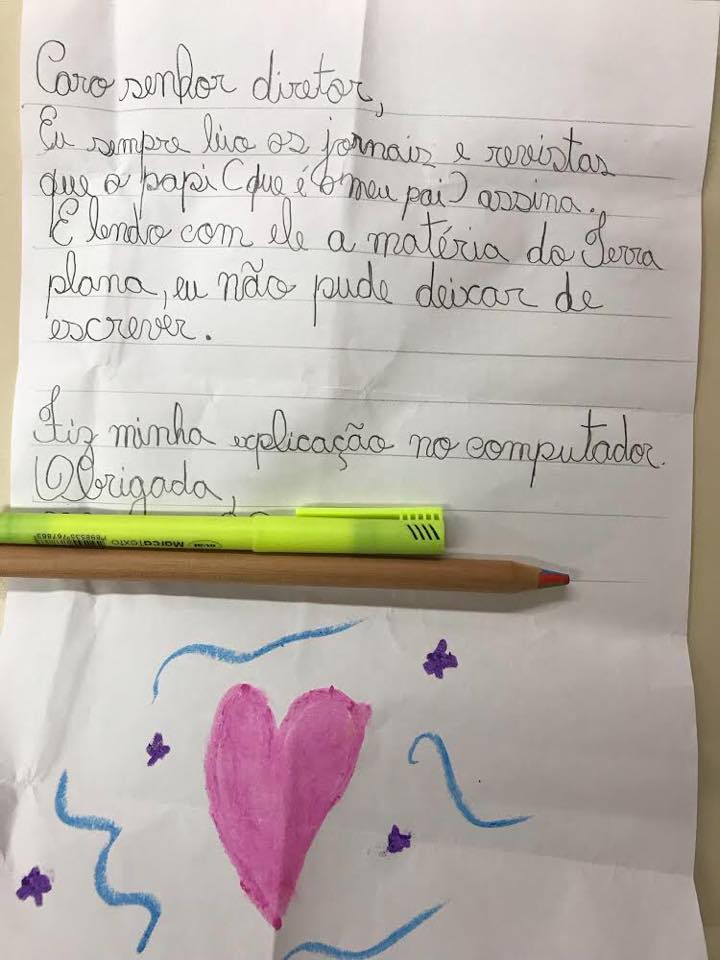 Caro senhor diretor,
Eu sempre leio os jornais e revistas
que o papi (que é o meu pai) assina.
E lendo com ele a matéria da Terra
plana, eu não pude deixar de
escrever.
Fiz minha explicação no computador.
Obrigada,
MarcaTexto